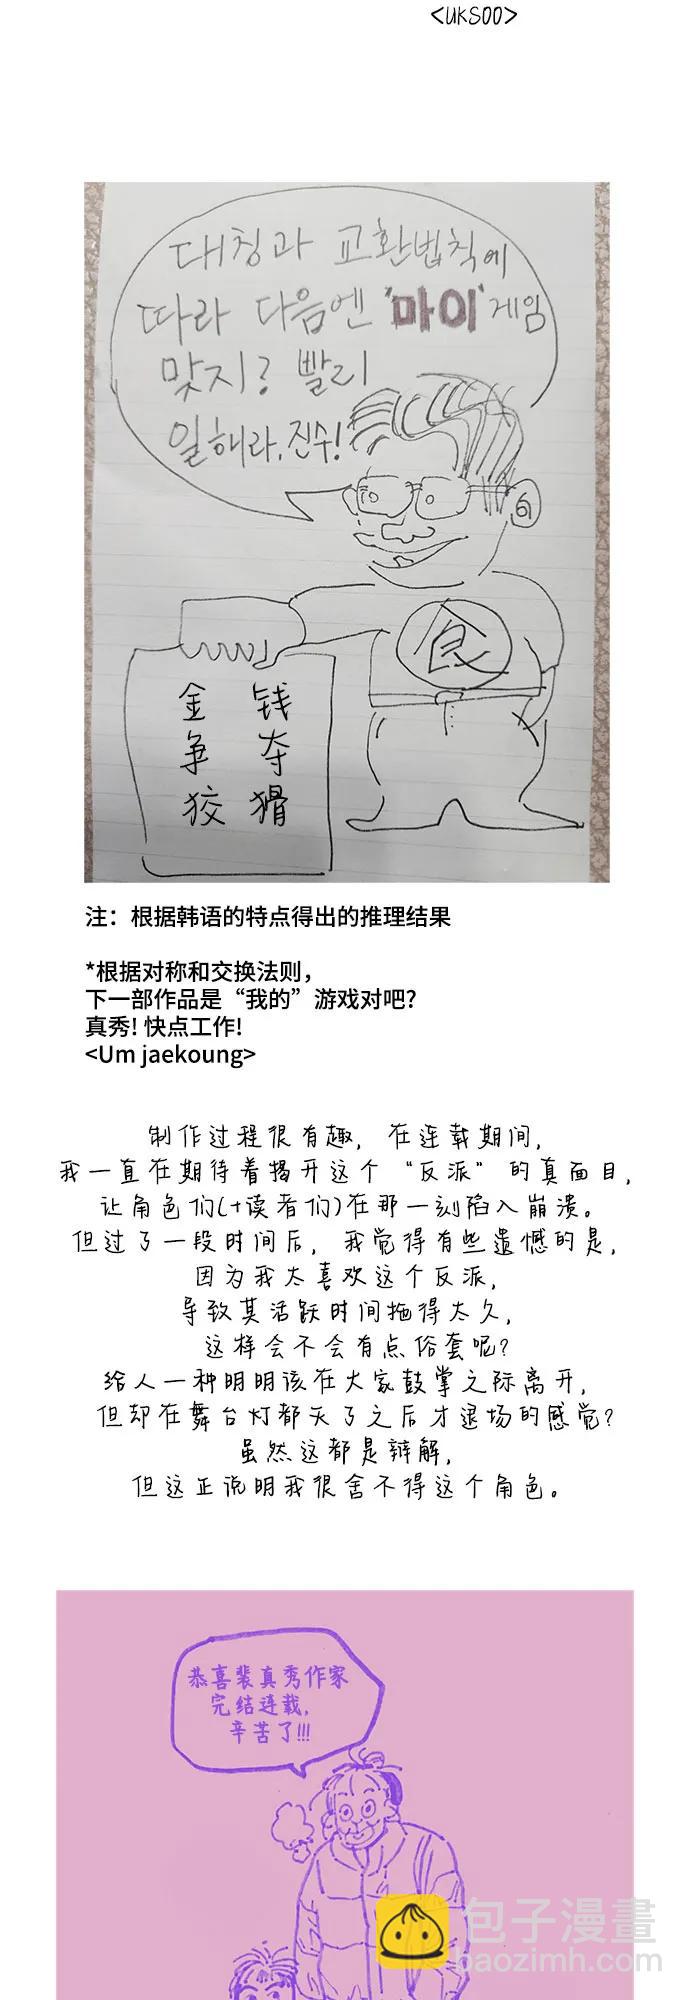 <UKS00>
대칭과 교환법칙에
따라 다음엔 '마이' 게임
맞지? 빨리
일해라, 진수!
食
金 钱
争 夺
狡 猾
注：根据韩语的特点得出的推理结果
*根据对称和交换法则，
下一部作品是“我的”游戏对吧？
真秀！快点工作！
<Um jaekoung>
制作过程很有趣，在连载期间，
我一直在期待着揭开这个“反派”的真面目，
让角色们(+读者们)在那一刻陷入崩溃。
但过了一段时间后，我觉得有些遗憾的是，
因为我太喜欢这个反派，
导致其活跃时间拖得太久，
这样会不会有点俗套呢？
给人一种明明该在大家鼓掌之际离开，
但却在舞台灯都灭了之后才退场的感觉？
虽然这都是辩解，
但这正说明我很舍不得这个角色。
恭喜裴真秀作家
完结连载，
辛苦了!!!
包子漫畫
baozimh.com